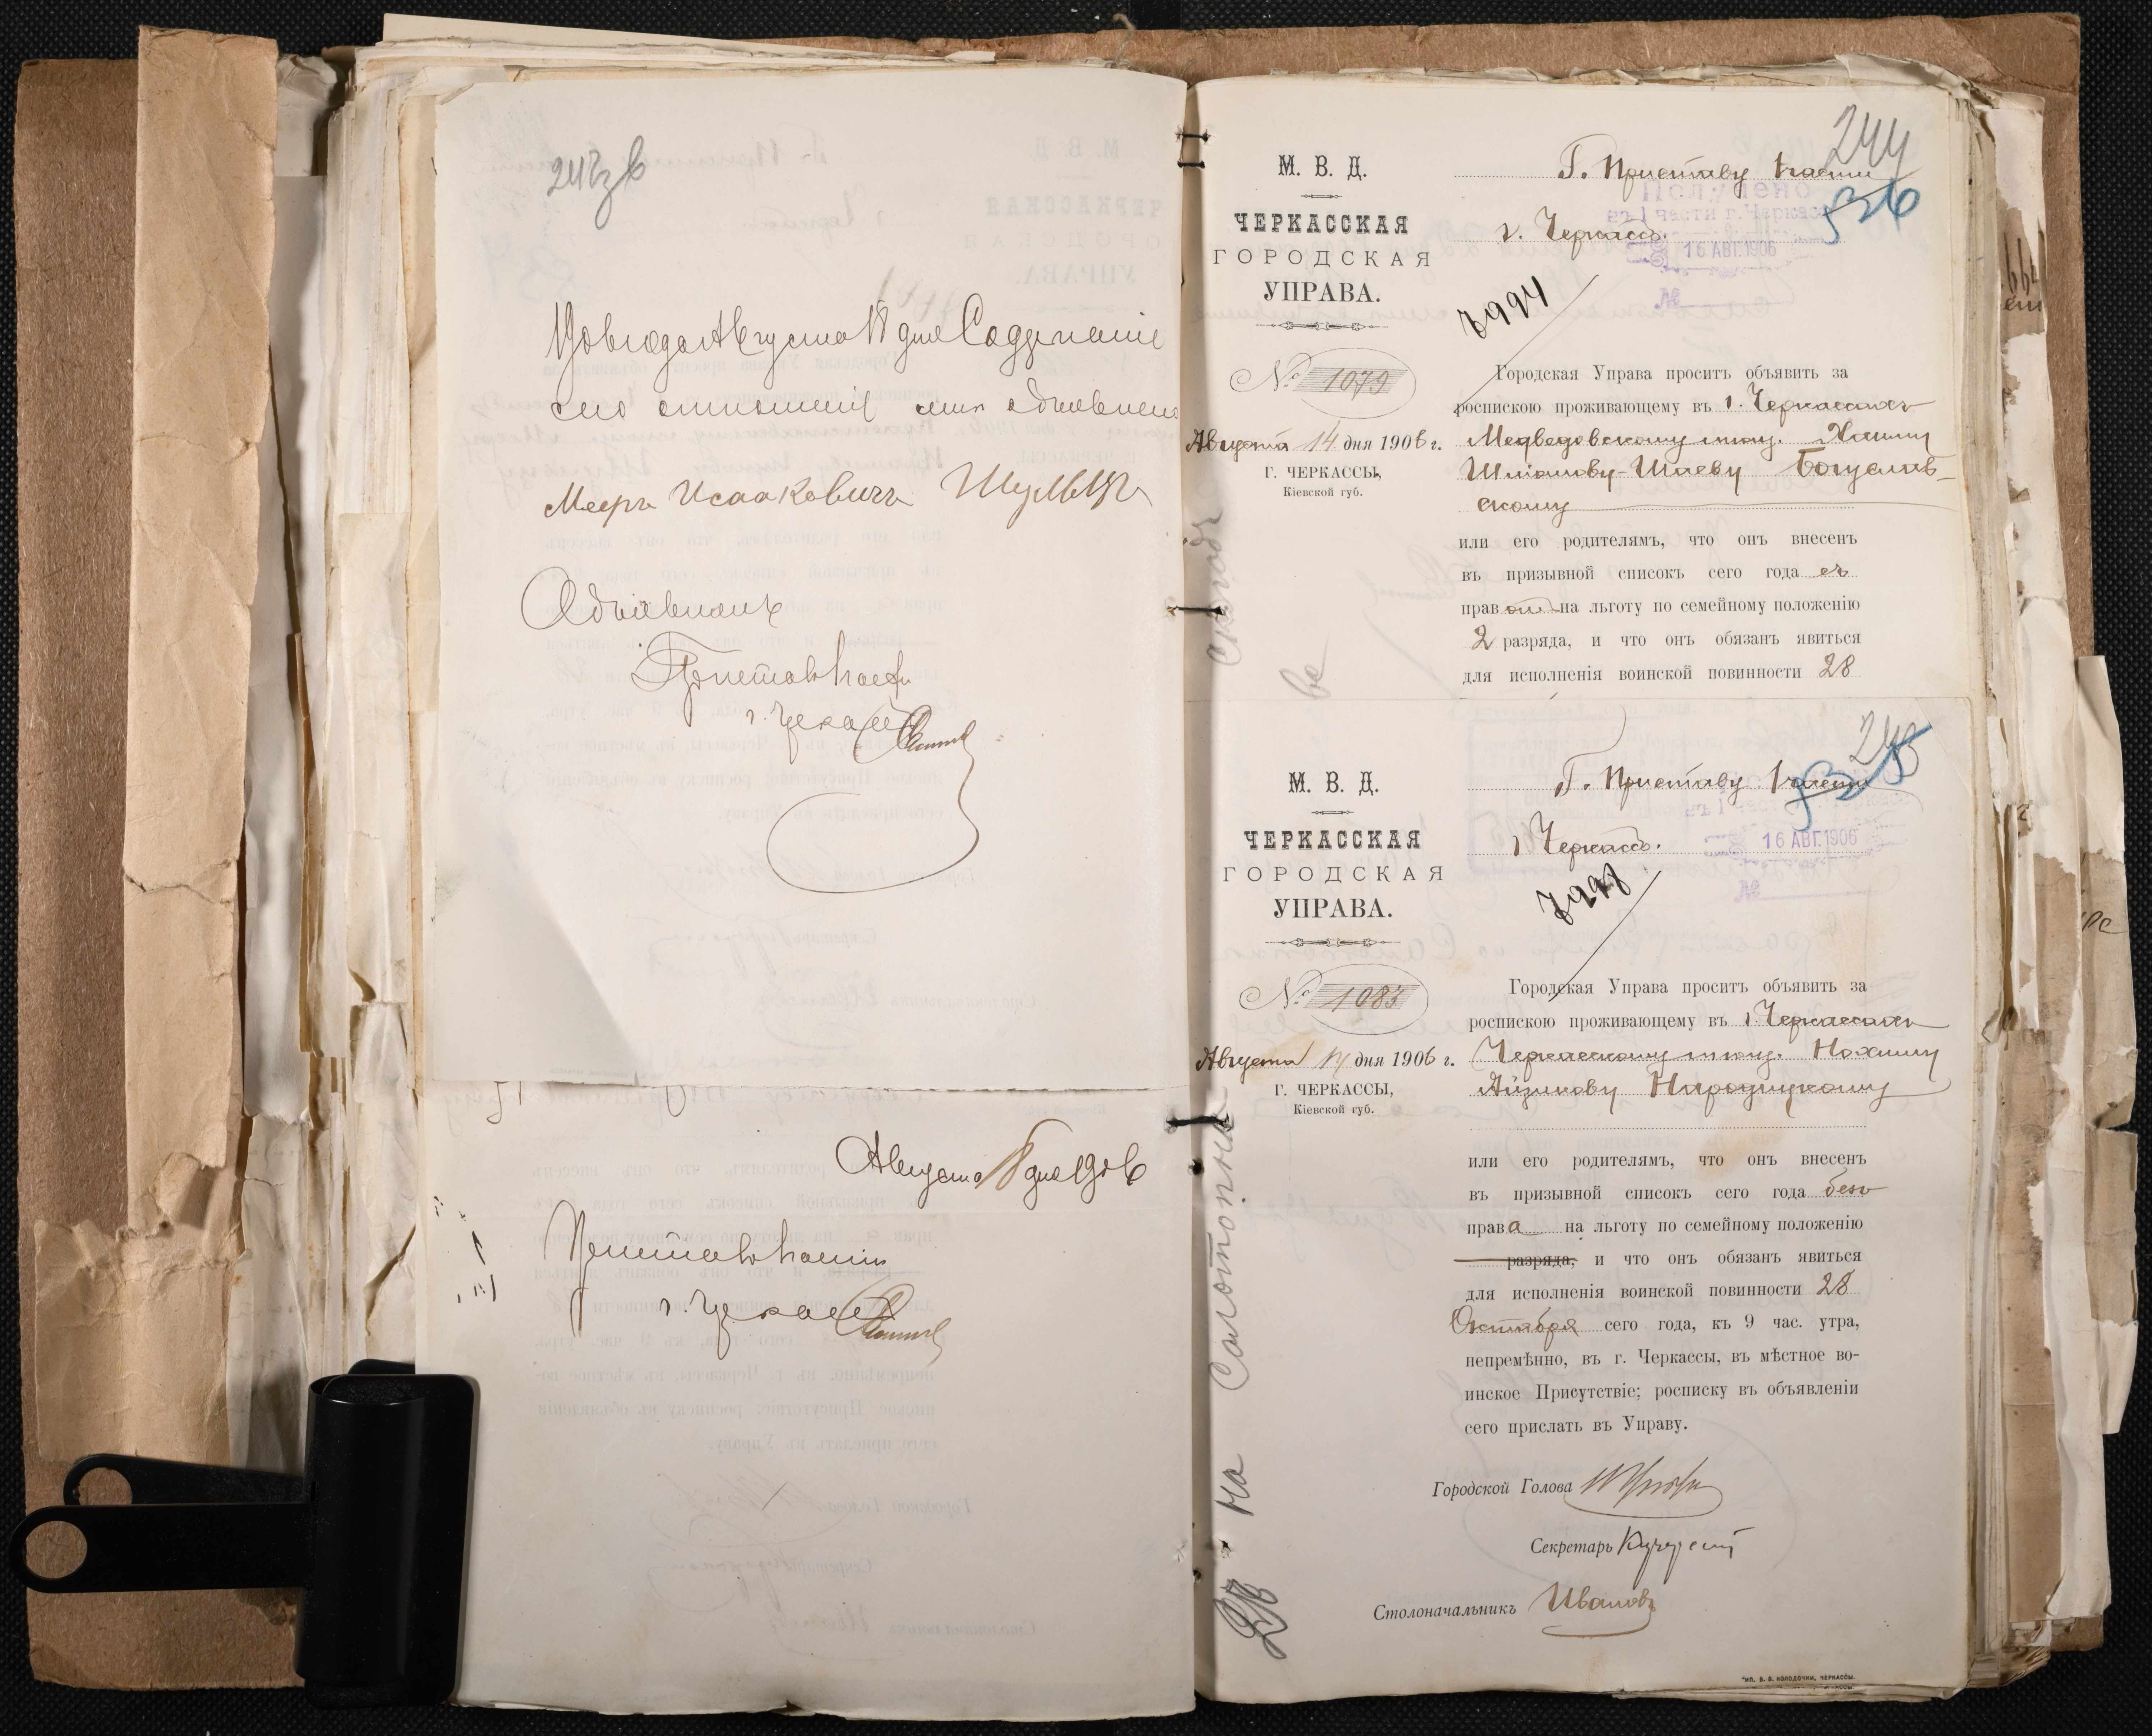 243 в
1906 года Августа 18 дня Содержание
сего отношения мне объявлено
Мееръ Исааковичъ Шульцъ
Объявилъ
Приставъ 1 части
г. Черкассъ
Августа 18 дня 1906
Приставъ 1 части
г. Черкассъ
244
М. В. Д.
ЧЕРКАССКАЯ
ГОРОДСКАЯ
УПРАВА.
№ 1079
Августа 14 дня 1906 г.
Г. ЧЕРКАССЫ,
Кіевской губ.
Г. Приставу 1 части
г. Черкассъ.
Получено
въ 1 части г. Черкассъ
16 АВГ. 1906
№
526
7994
Городская Управа проситъ объявить за
роспискою проживающему въ г. Черкассахъ
Медведовскому мѣщ. Хаиму
Шліомову-Шаеву Богуслав-
скому
или его родителямъ, что онъ внесенъ
въ призывной списокъ сего года съ
прав ом на льготу по семейному положенію
2 разряда, и что онъ обязанъ явиться
для исполненія воинской повинности 28
245
М. В. Д.
ЧЕРКАССКАЯ
ГОРОДСКАЯ
УПРАВА.
№ 1083
Августа 14 дня 1906 г.
Г. ЧЕРКАССЫ,
Кіевской губ.
Г. Приставу 1 части
г. Черкассъ.
16 АВГ. 1906
№
Городская Управа проситъ объявить за
роспискою проживающему въ г. Черкассахъ
Черкасскому мѣщ. Нохиму
Айзикову Народицкому
или его родителямъ, что онъ внесенъ
въ призывной списокъ сего года безъ
права на льготу по семейному положенію
разряда, и что онъ обязанъ явиться
для исполненія воинской повинности 28
Октября сего года, къ 9 час. утра,
непремѣнно, въ г. Черкассы, въ мѣстное во-
инское Присутствіе; росписку въ объявленіи
сего прислать въ Управу.
Городской Голова
Секретарь
Столоначальникъ Ивановъ
ТИП. В. В. КОЛОДОЧКИ, ЧЕРКАССЫ.